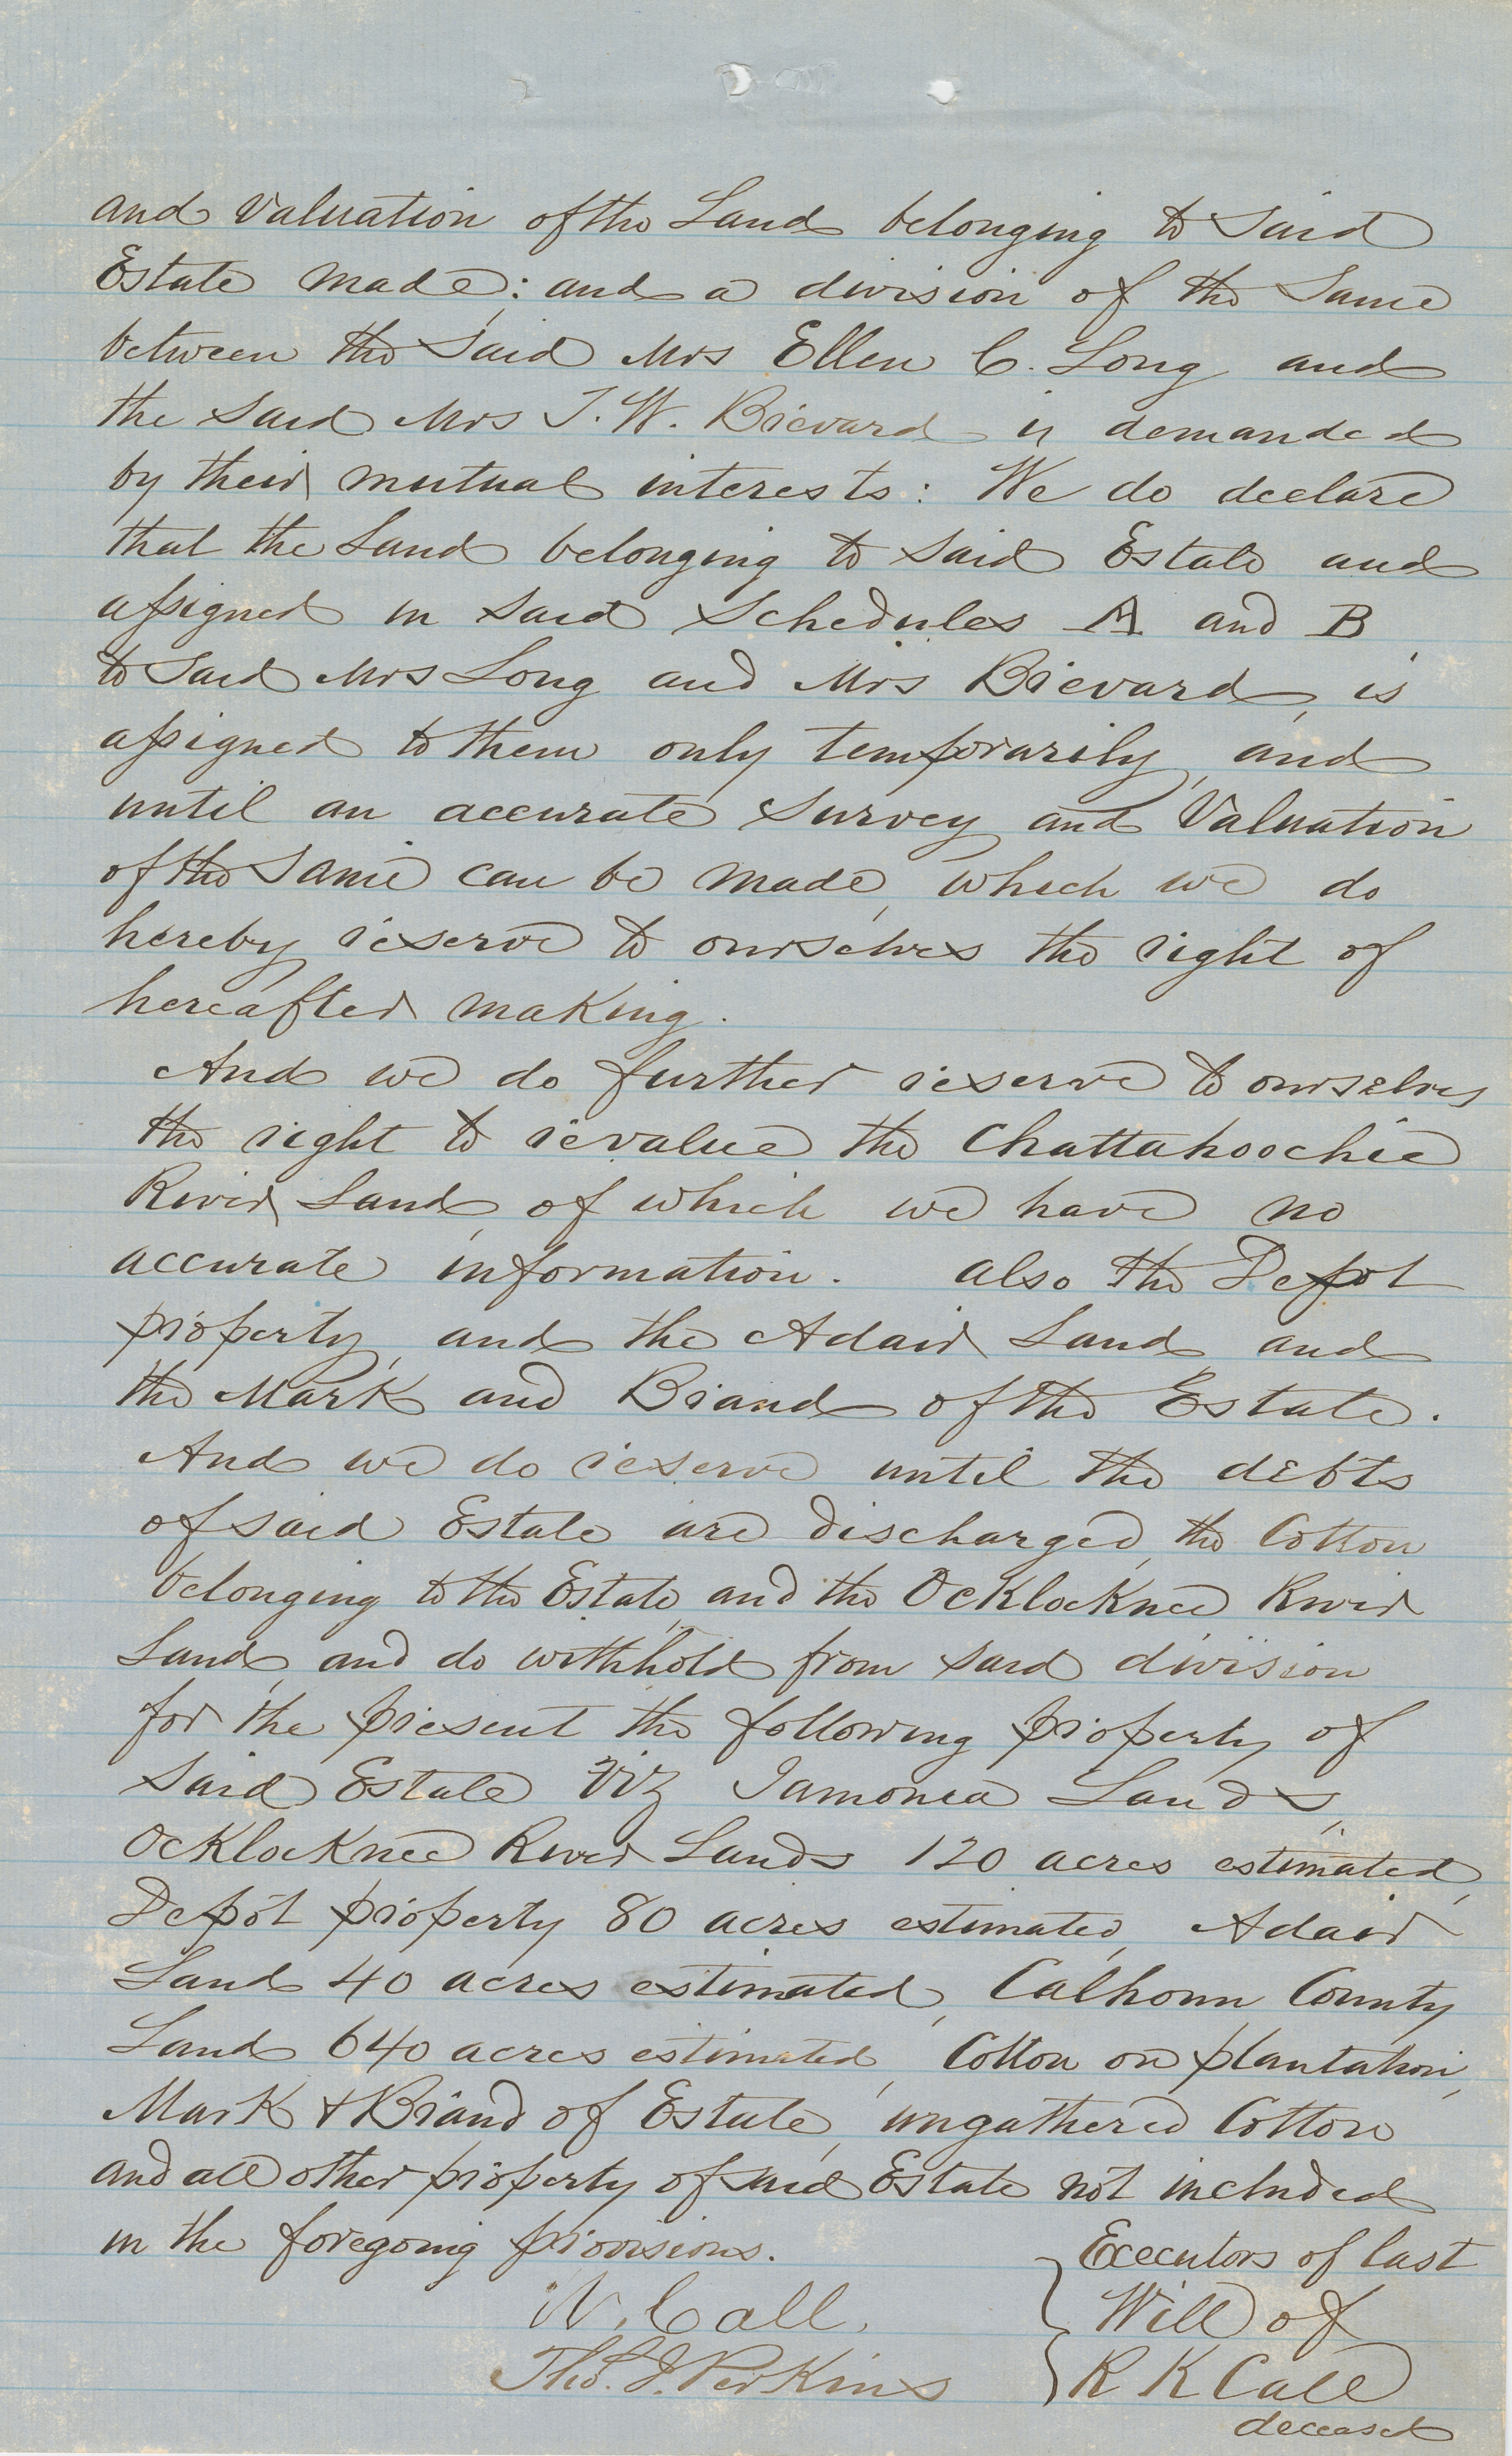 and valuation of the Land belonging to Said
Estate made; and a division of the Same
between the Said Mrs Ellen C. Long and
the Said Mrs T. W. Brevard is demanded
by their mutual interests: We do declare
that the Land belonging to Said Estate and
assigned in Said Schedules A and B
to Said Mrs Long and Mrs Brevard, is
assigned to them only temporarily, and
until an accurate Survey and Valuation
of the Same can be made, which we do
hereby reserve to ourselves the right of
hereafter making.
And we do further reserve to ourselves
the right to revalue the Chattahoochie
River Land, of which we have no
accurate information. also the Depot
property, and the Adair Land, and
the Mark and Brand of the Estate.
And we do reserve until the debts
of said Estate are discharged, the Cotton
belonging to the Estate, and the Ocklocknee River
Land, and do withhold from said division
for the present the following property of
Said Estate Viz Iamonia Lands,
Ocklocknee River Lands 120 acres estimated,
Depot property 80 acres estimated, Adair
Land 40 acres estimated, Calhoun County
Land 640 acres estimated, Cotton on plantation,
Mark & Brand of Estate, ungathered Cotton
and all other property of said Estate not included
in the foregoing provisions.
Executors of last
W. Call. Will of
Tho. J. Perkins R K Call
deceased